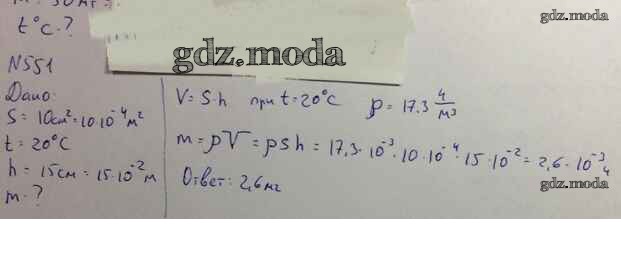 t°c.?
gdz.moda
gdz.moda
N551
Дано:
S = 10см² = 10·10⁻⁴м²
t = 20°С
h = 15см = 15·10⁻²м
m - ?
V = S·h при t = 20°С ρ = 17.3 г/м³
m = ρV = ρSh = 17,3·10⁻³·10·10⁻⁴·15·10⁻² = 2,6·10⁻³ г
Ответ: 2,6мг
gdz.moda